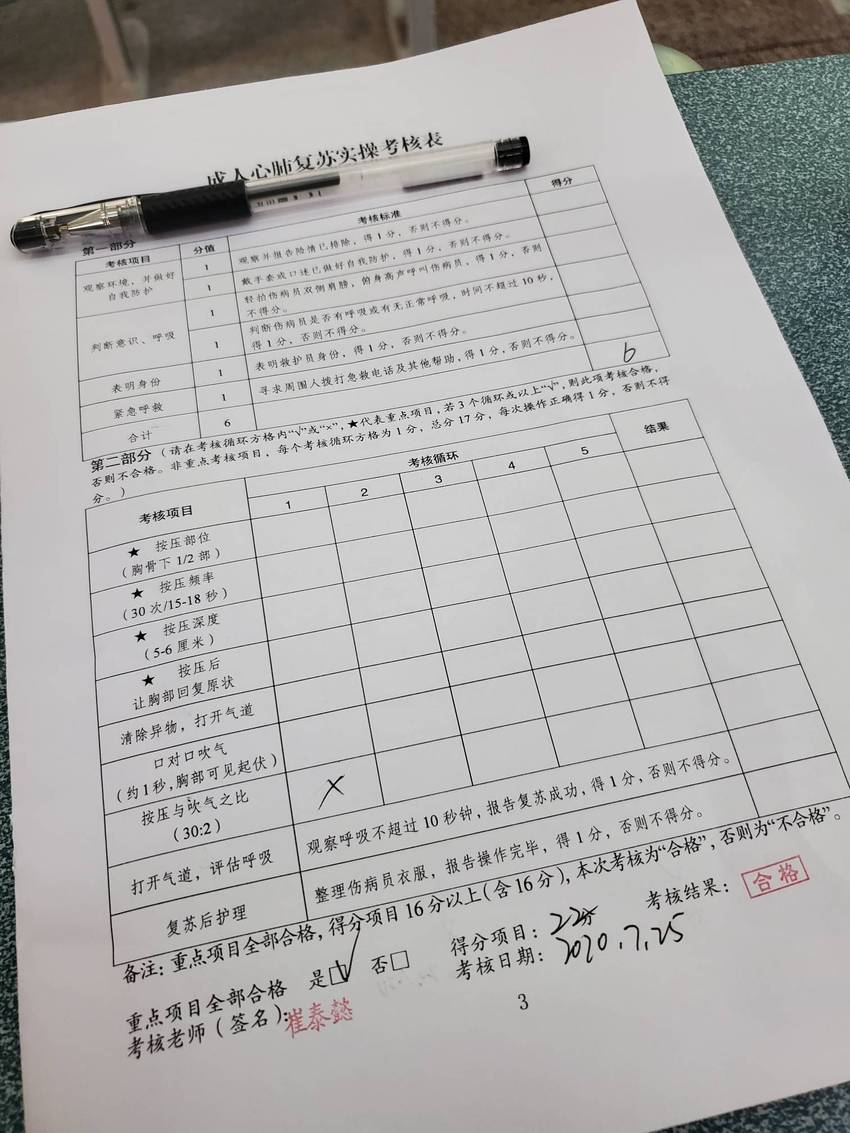 成人心肺复苏实操考核表
第一部分
考核项目 分值 考核标准 得分
观察环境，并做好自我防护 1 观察并报告险情已排除，得1分，否则不得分。
1 戴手套或口述已做好自我防护，得1分，否则不得分。
判断意识、呼吸 1 轻拍伤病员双侧肩膀，俯身高声呼叫伤病员，得1分，否则
不得分。
1 判断伤病员是否有呼吸或有无正常呼吸，时间不超过10秒，
得1分，否则不得分。
表明身份 1 表明救护员身份，得1分，否则不得分。
紧急呼救 1 寻求周围人拨打急救电话及其他帮助，得1分，否则不得分。
合计 6 6
第二部分（请在考核循环方格内“√”或“×”，★代表重点项目，若3个循环或以上“√”，则此项考核合格，
否则不合格。非重点考核项目，每个考核循环方格为1分，总分17分，每次操作正确得1分，否则不得
分。）
考核项目 考核循环 结果
1 2 3 4 5
★ 按压部位
（胸骨下1/2部）
★ 按压频率
（30次/15-18秒）
★ 按压深度
（5-6厘米）
★ 按压后
让胸部回复原状
清除异物，打开气道
口对口吹气
（约1秒，胸部可见起伏）
按压与吹气之比
（30:2） ×
打开气道，评估呼吸 观察呼吸不超过10秒钟，报告复苏成功，得1分，否则不得分。
复苏后护理 整理伤病员衣服，报告操作完毕，得1分，否则不得分。
备注：重点项目全部合格，得分项目16分以上（含16分），本次考核为“合格”，否则为“不合格”。
重点项目全部合格 是☑ 否□ 得分项目：22分 考核结果：合格
考核老师（签名）：崔泰懿 考核日期：2020.7.25
3